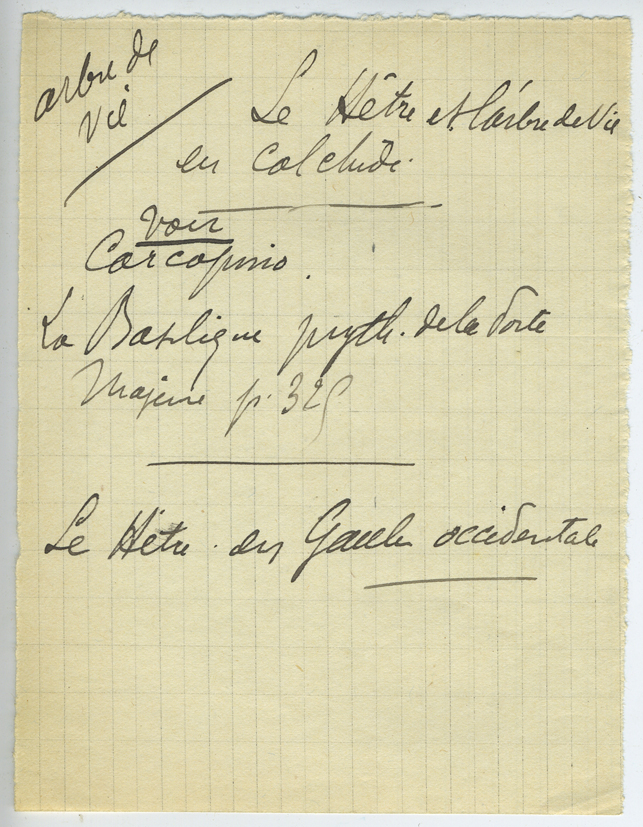 arbre de
Vie
Le Hêtre et l'arbre de Vie
en Colchide.
voir
Carcopino.
La Basilique pyth. de la Porte
Majeure p. 325
Le Hêtre en Gaule occidentale